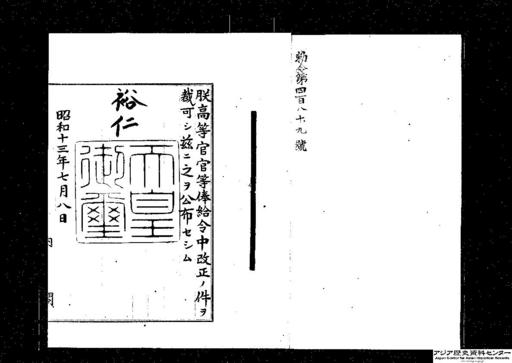 勅令第四百八十九號
朕高等官官等俸給令中改正ノ件ヲ
裁可シ茲ニ之ヲ公布セシム
裕仁
天皇
御璽
昭和十三年七月八日
内閣
アジア歴史資料センター
Japan Center for Asian Historical Records